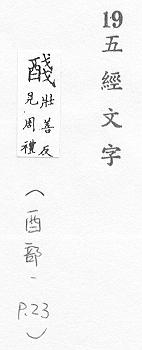 19五經文字
醆
壯善反
見周禮
(酉部、P.23)